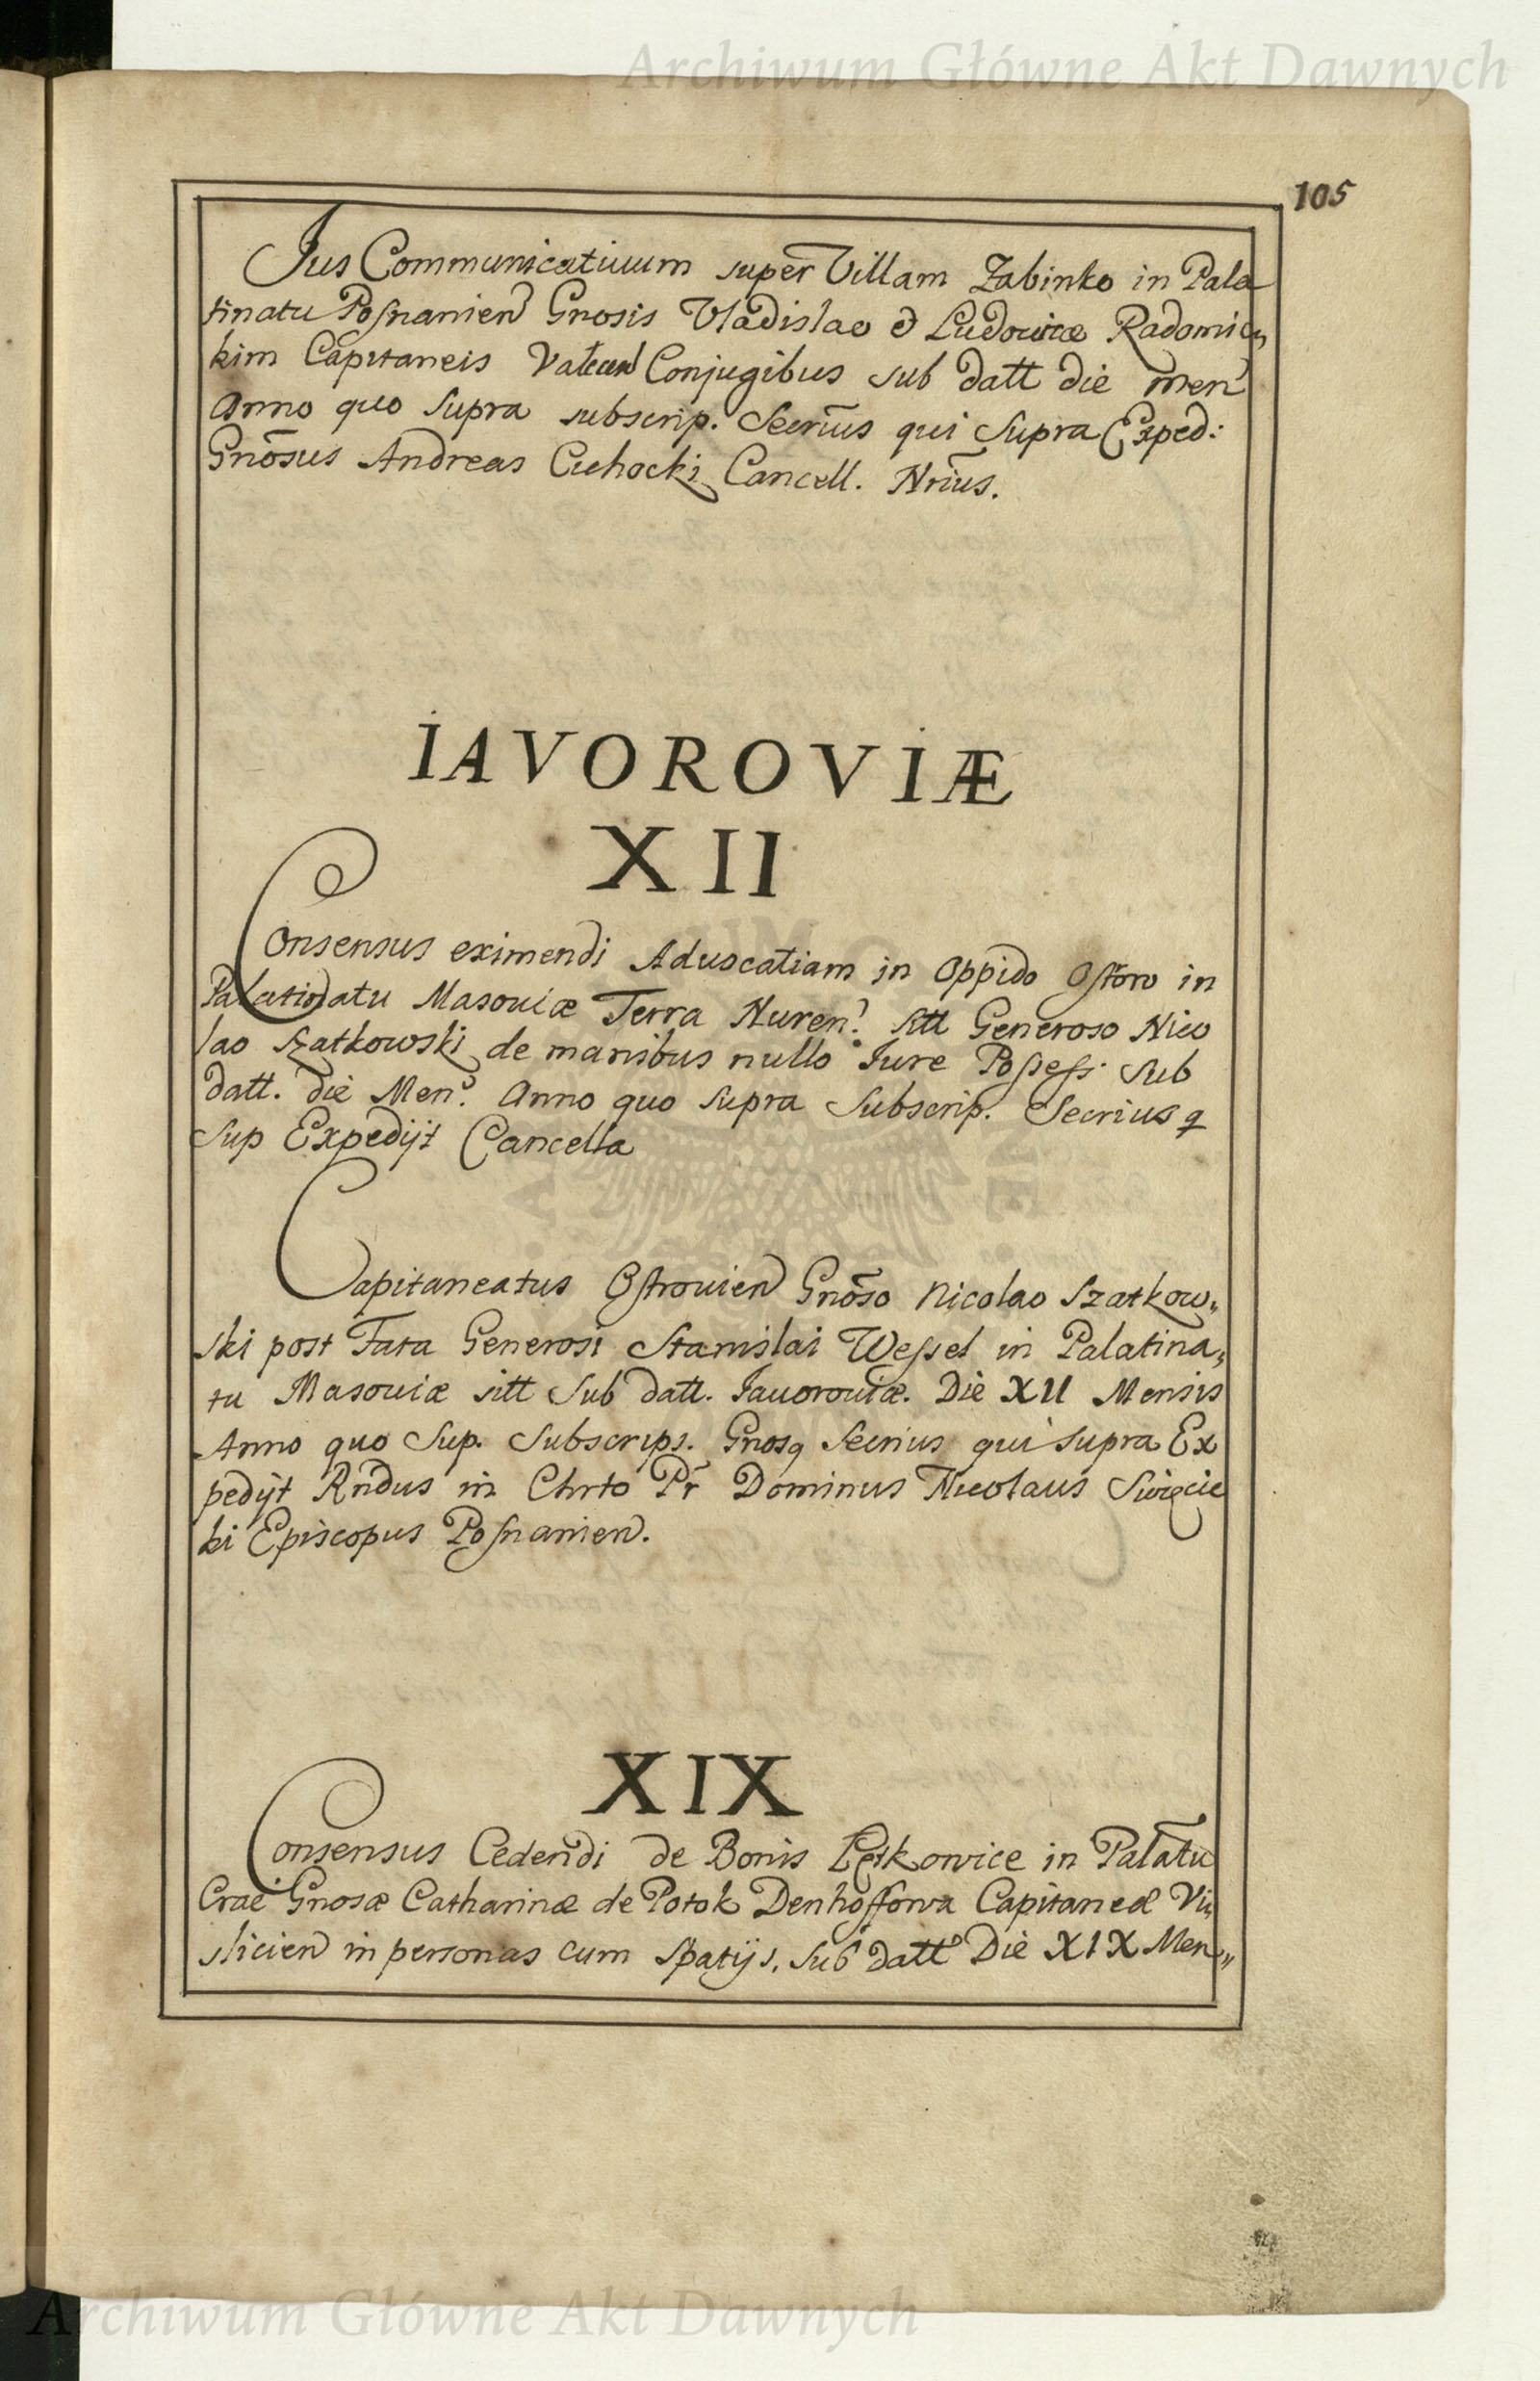 Archiwum Główne Akt Dawnych
105
Jus Communicatiuum super Villam Zabinko in Pala
tinatu Posnanien Gnosis Vladislao & Ludouicæ Radomic„
kim Capitaneis Conjugibus sub datt die men
Anno quo supra subscrip. Secrius qui supra Exped:
Gnōsus Andreas Cichocki Cancell. Nrius.
IAVOROVIÆ
XII
Consensus eximendi Aduocatiam in Oppido Ostrow in
Palatinatu Masouiæ Terra Nuren. sitt Generoso Nico
lao Szatkowski de manibus nullo Jure Possess. sub
datt. die Men. Anno quo supra Subscrip. Secrius q
sup Expedijt Cancella
Capitaneatus Ostrouien Gnōso Nicolao Szatkow„
ski post Fata Generosi Stanislai Wessel in Palatina„
tu Masouiæ sitt sub datt. Jauorouiæ. Die XII Mensis
Anno quo Sup. Subscrips. Gnosq Secrius qui supra Ex
pedijt Rndus in Chrto Pr Dominus Nicolaus Swięcic
ki Episcopus Posnanien.
XIX
Consensus Cedendi de Bonis Łętkowice in Palatu
Crac Gnosæ Catharinæ de Potok Denhoffowa Capitaneæ Vi„
slicien in personas cum spatijs. sub datt Die XIX Men„
Archiwum Główne Akt Dawnych